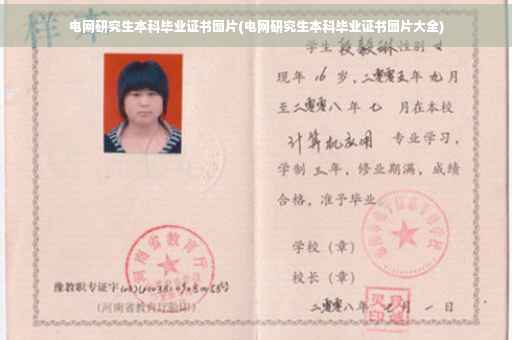 电网研究生本科毕业证书图片(电网研究生本科毕业证书图片大全)
样本
学生 段毅琳 性别 女
现年 16 岁，二零零五年 九月
至二零零八年 七 月在本校
计算机应用 专业学习，
学制 三年，修业期满，成绩
合格，准予毕业
学校（章）
校长（章）
河南省教育厅
豫教职专证字
(河南省教育厅验印)
二零零八年 七 月 一 日